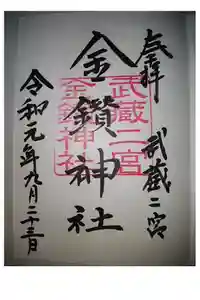 奉拝 武蔵二宮
金鑚神社
令和元年九月二十三日
武蔵二宮
金鑚神社